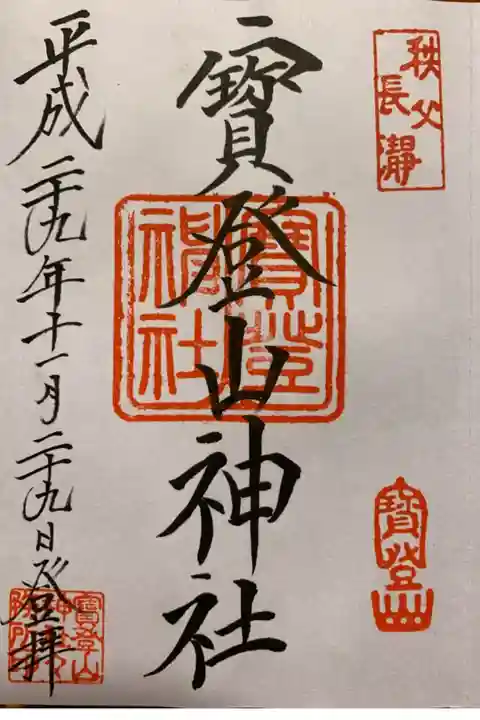 秩父
長瀞
寶登山神社
寶登
神社
寶登山
平成二十九年十一月二十九日登拝
寶登山
神社